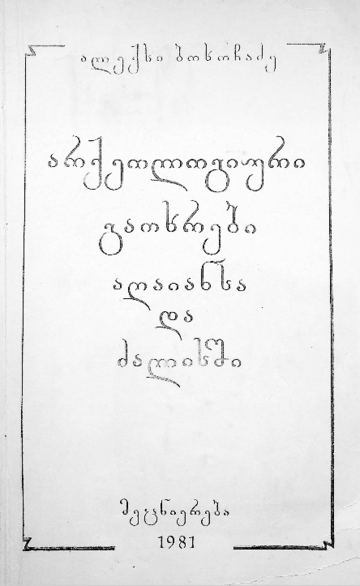 ალექსი ბოხოჩაძე
არქეოლოგიური
გათხრები
აღაიანსა
და
ძალისში
მეცნიერება
1981